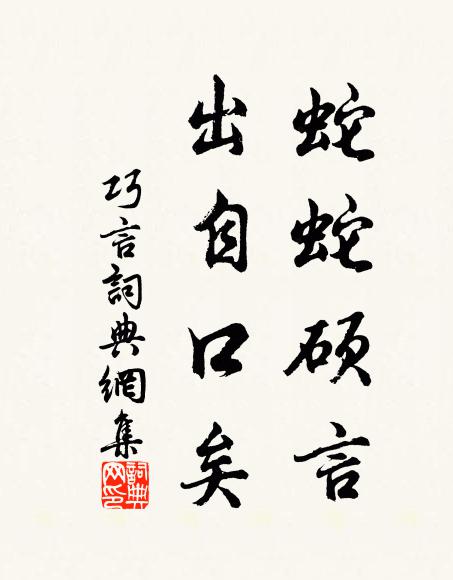 蛇蛇硕言
出自口矣
巧言詞典網集
詞典網印